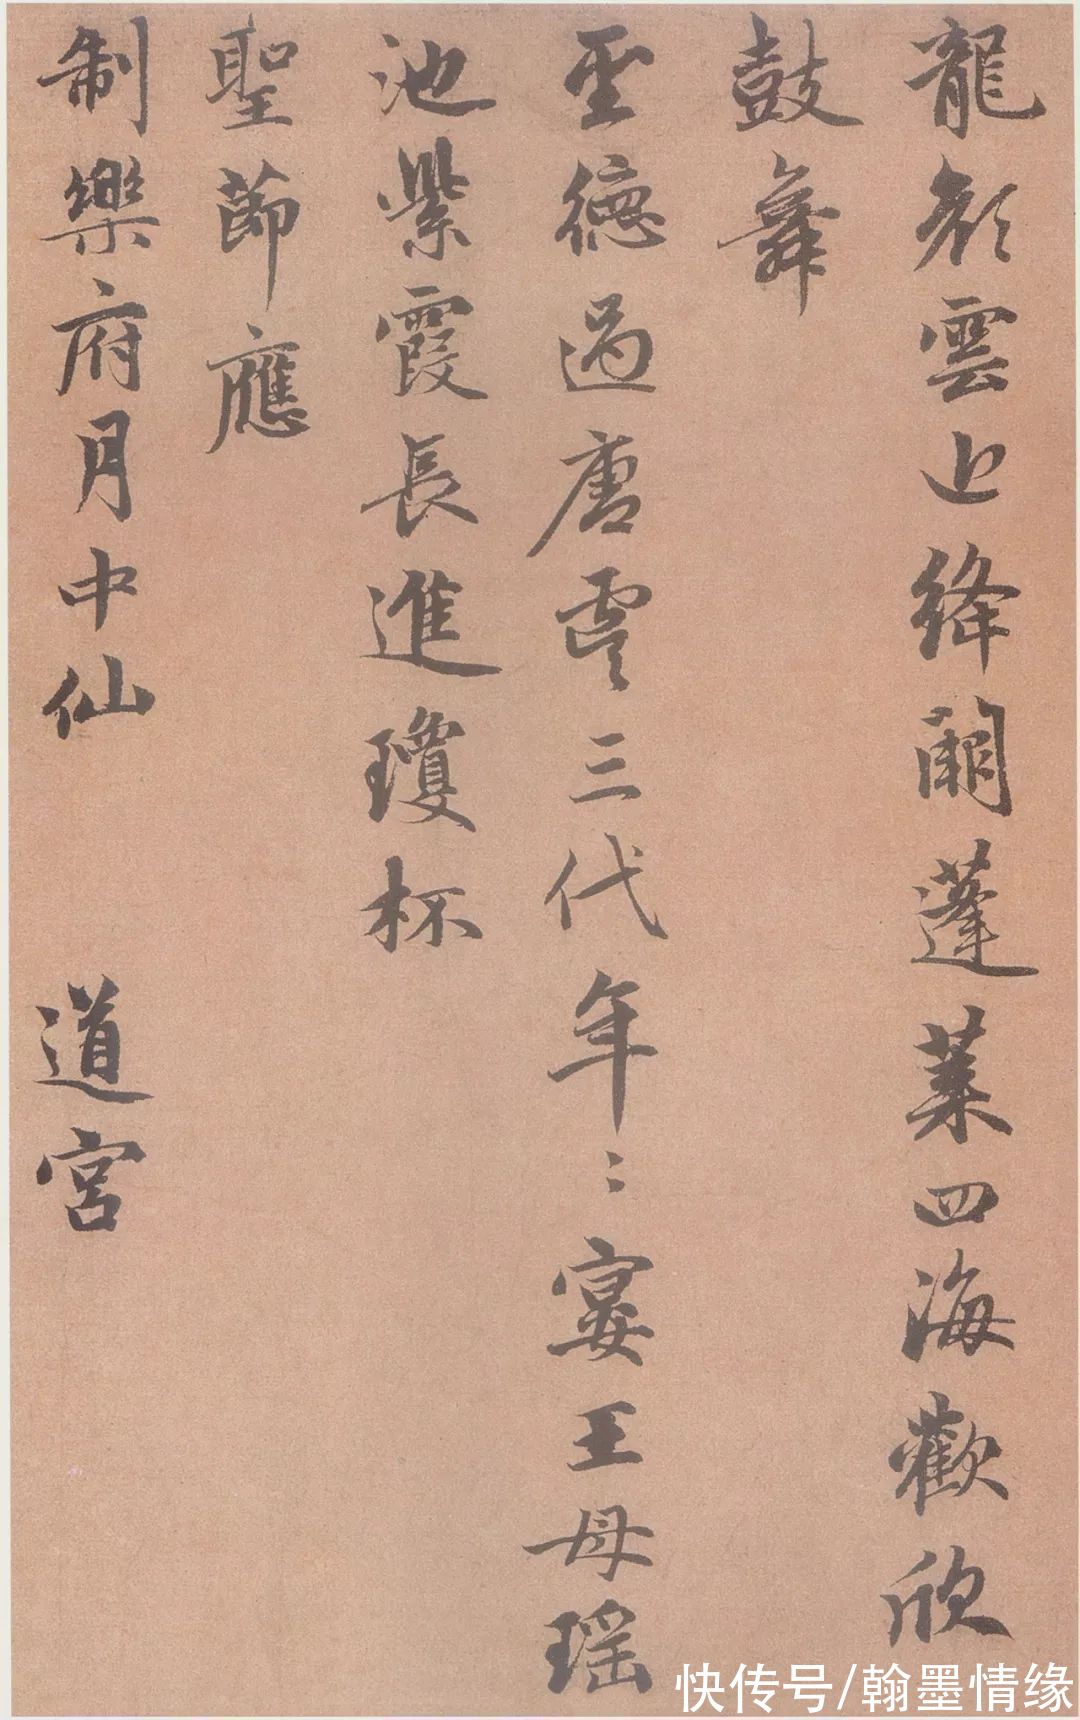 龍顏雲近絳闕蓬萊四海歡欣
鼓舞
聖德過唐虞三代年〻宴王母瑤
池紫霞長進瓊杯
聖節應
制樂府月中仙 道宮
快传号/翰墨情缘